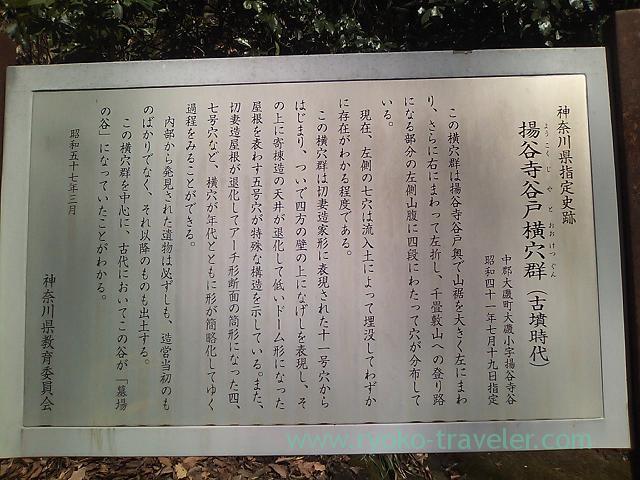 神奈川県指定史跡
ようこくじやとおおけつぐん
揚谷寺谷戸横穴群（古墳時代）
中郡大磯町大磯小字揚谷寺谷
昭和四十一年七月十九日指定
この横穴群は揚谷寺谷戸奥で山裾を大きく左にまわ
り、さらに右にまわって左折し、千畳敷山への登り路
になる部分の左側山腹に四段にわたって穴が分布して
いる。
現在、左側の七穴は流入土によって埋没してわずか
に存在がわかる程度である。
この横穴群は切妻造家形に表現された十一号穴から
はじまり、ついで四方の壁の上になげしを表現し、そ
の上に寄棟造の天井が退化して低いドーム形になった
屋根を表わす五号穴が特殊な構造を示している。また、
切妻造屋根が退化してアーチ形断面の筒形になった四、
七号穴など、横穴が年代とともに形が簡略化してゆく
過程をみることができる。
内部から発見された遺物は必ずしも、造営当初のも
のばかりでなく、それ以降のものも出土する。
この横穴群を中心に、古代においてこの谷が「墓場
の谷」になっていたことがわかる。
昭和五十七年三月
神奈川県教育委員会
www.ryoko-traveler.com